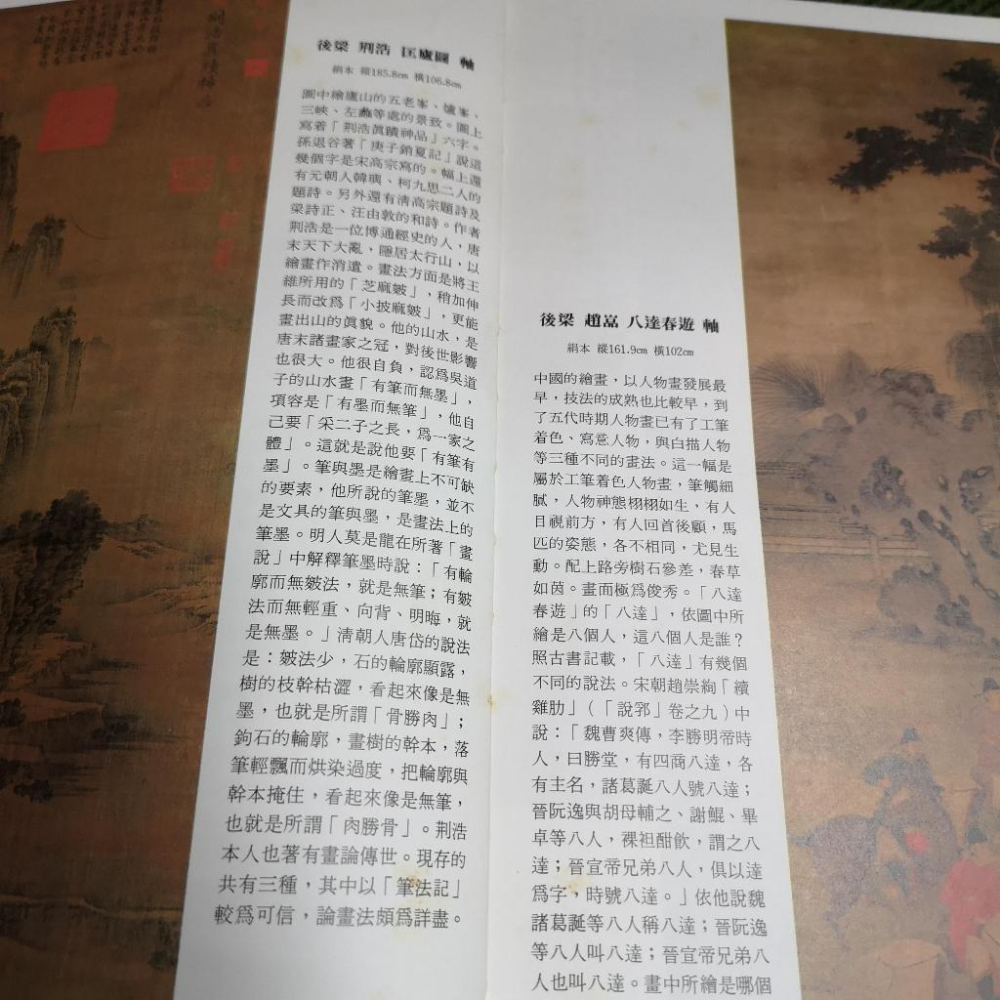 後梁 荆浩 匡廬圖 軸
絹本 縱185.8㎝ 橫106.8㎝
圖中繪廬山的五老峯、爐峯、
三峽、左蠡等處的景致。圖上
寫着「荆浩眞蹟神品」六字。
孫退谷著「庚子銷夏記」說這
幾個字是宋高宗寫的。幅上還
有元朝人韓璵、柯九思二人的
題詩。另外還有淸高宗題詩及
梁詩正、汪由敦的和詩。作者
荆浩是一位博通經史的人，唐
末天下大亂，隱居太行山，以
繪畫作消遣。畫法方面是將王
維所用的「芝麻皴」，稍加伸
長而改爲「小披麻皴」，更能
畫出山的眞貌。他的山水，是
唐末諸畫家之冠，對後世影響
也很大。他很自負，認爲吳道
子的山水畫「有筆而無墨」，
項容是「有墨而無筆」，他自
己要「采二子之長，爲一家之
體」。這就是說他要「有筆有
墨」。筆與墨是繪畫上不可缺
的要素，他所說的筆墨，並不
是文具的筆與墨，是畫法上的
筆墨。明人莫是龍在所著「畫
說」中解釋筆墨時說：「有輪
廓而無皴法，就是無筆；有皴
法而無輕重、向背、明晦，就
是無墨。」淸朝人唐岱的說法
是：皴法少，石的輪廓顯露，
樹的枝幹枯澀，看起來像是無
墨，也就是所謂「骨勝肉」；
鉤石的輪廓，畫樹的幹本，落
筆輕飄而烘染過度，把輪廓與
幹本掩住，看起來像是無筆，
也就是所謂「肉勝骨」。荆浩
本人也著有畫論傳世。現存的
共有三種，其中以「筆法記」
較爲可信，論畫法頗爲詳盡。
後梁 趙嵓 八達春遊 軸
絹本 縱161.9㎝ 橫102㎝
中國的繪畫，以人物畫發展最
早，技法的成熟也比較早，到
了五代時期人物畫已有了工筆
着色、寫意人物，與白描人物
等三種不同的畫法。這一幅是
屬於工筆着色人物畫，筆觸細
膩，人物神態栩栩如生，有人
目視前方，有人回首後顧，馬
匹的姿態，各不相同，尤見生
動。配上路旁樹石參差，春草
如茵。畫面極爲俊秀。「八達
春遊」的「八達」，依圖中所
繪是八個人，這八個人是誰？
照古書記載，「八達」有幾個
不同的說法。宋朝趙崇絢「續
雞肋」（「說郛」卷之九）中
說：「魏曹爽傳，李勝明帝時
人，曰勝堂，有四商八達，各
有主名，諸葛誕八人號八達；
晉阮逸與胡母輔之、謝鯤、畢
卓等八人，裸袒酣飲，謂之八
達；晉宣帝兄弟八人，俱以達
爲字，時號八達。」依他說魏
諸葛誕等八人稱八達；晉阮逸
等八人叫八達；晉宣帝兄弟八
人也叫八達。畫中所繪是哪個